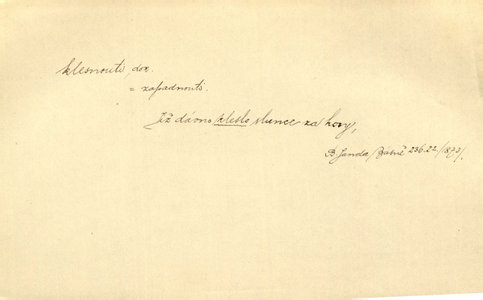 klesnouti, dok.
= zapadnouti.
Již dávno kleslo slunce za hory,
B. Janda, Básně 236.22./1873/.